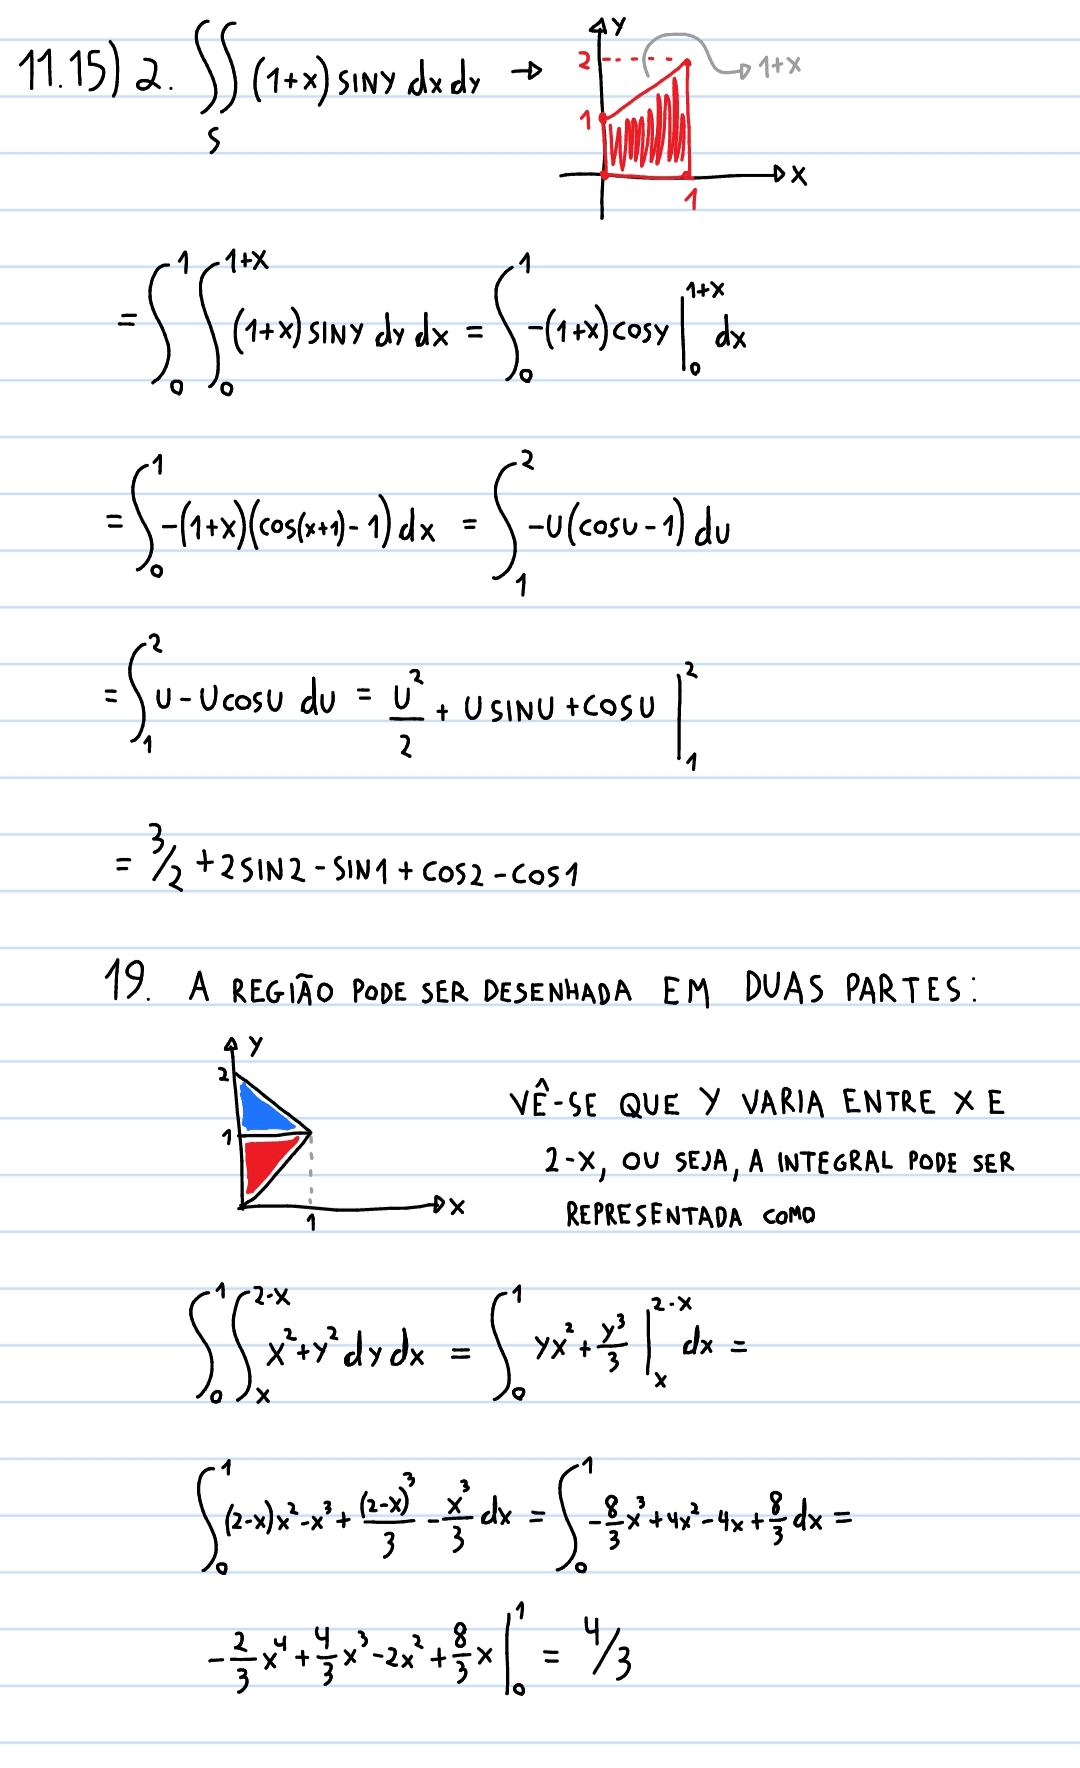 11.15) 2. ∬_S (1+x) SINY dx dy → Y 2 1 1+X X 1
= ∫_0^1 ∫_0^{1+X} (1+x) SINY dy dx = ∫_0^1 -(1+x) cosy |_0^{1+X} dx
= ∫_0^1 -(1+x)(cos(x+1)-1) dx = ∫_1^2 -U(cosu-1) du
= ∫_1^2 U-UcosU du = U²/2 + USINU+COSU |_1^2
= 3/2 + 2SIN2 - SIN1 + COS2 - COS1
19. A REGIÃO PODE SER DESENHADA EM DUAS PARTES:
Y 2 1 1 X
VÊ-SE QUE Y VARIA ENTRE X E
2-X, OU SEJA, A INTEGRAL PODE SER
REPRESENTADA COMO
∫_0^1 ∫_x^{2-X} x²+y² dy dx = ∫_0^1 yx² + y³/3 |_x^{2-x} dx =
∫_0^1 (2-x)x²-x³ + (2-x)³/3 - x³/3 dx = ∫_0^1 -8/3 x³+4x²-4x+8/3 dx =
-2/3 x⁴ + 4/3 x³ - 2x² + 8/3 x |_0^1 = 4/3